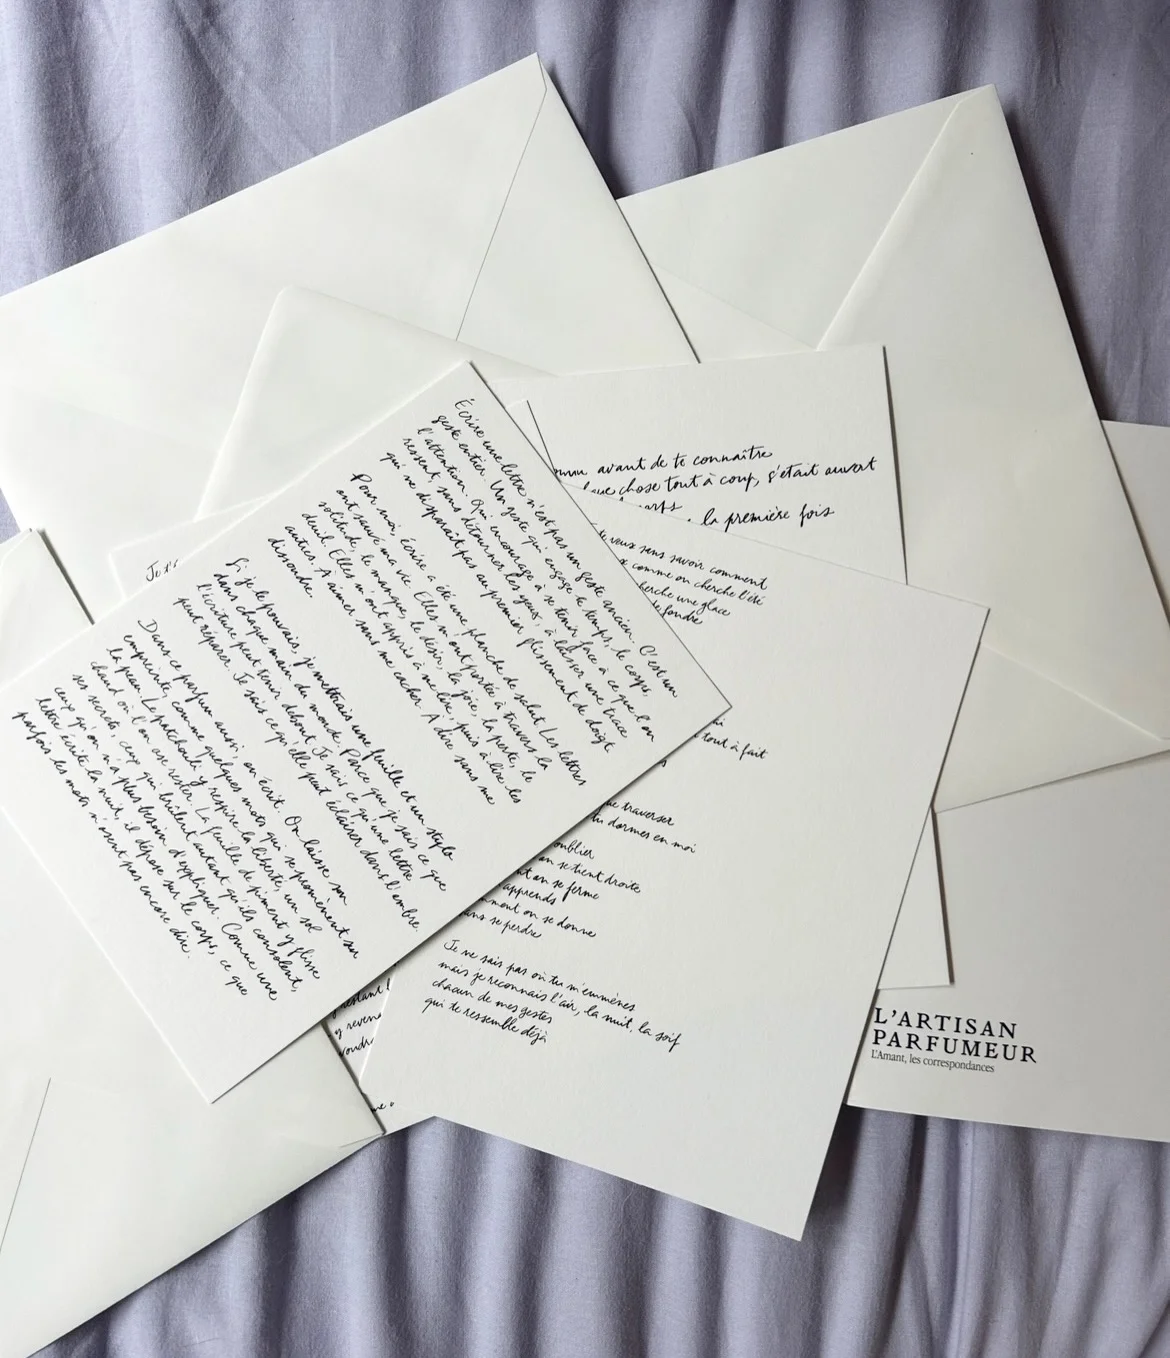 Écrire une lettre n'est pas un geste ancien. C'est un
geste entier. Un geste qui engage le temps, le corps,
l'attention. Qui encourage à se tenir face à ce que l'on
ressent, sans détourner les yeux, à laisser une trace
qui ne disparaît pas au premier glissement de doigt.
Pour moi, écrire a été une planche de salut. Les lettres
ont sauvé ma vie. Elles m'ont portée à travers la
solitude, le manque, le désir, la joie, la perte, le
deuil. Elles m'ont appris à me lire, puis à lire les
autres. A aimer sans me cacher. A dire sans me
dissoudre.
Si je le pouvais, je mettrais une feuille et un stylo
dans chaque main du monde. Parce que je sais ce que
l'écriture peut tenir debout. Je sais ce qu'une lettre
peut réparer. Je sais ce qu'elle peut éclairer dans l'ombre.
Dans ce parfum aussi on écrit. On laisse son
empreinte, comme quelques mots qui se promènent sur
la peau. Le patchouli y respire la liberté, un sol
chaud où l'on ose rester. La feuille de piment y glisse
ses secrets, ceux qui brûlent autant qu'ils consolent,
ceux qu'on n'a plus besoin d'expliquer. Comme une
lettre écrite la nuit, il dépose sur le corps, ce que
parfois les mots n'osent pas encore dire.
avant de te connaître
chose tout à coup, s'était ouvert
la première fois
veux sans savoir comment
comme on cherche l'été
cherche une glace
fondre
tout à fait
traverser
tu dormes en moi
oublier
on se tient droite
on se ferme
apprends
on se donne
sans se perdre
Je ne sais pas où tu m'emmènes
mais je reconnais l'air, la nuit, la soif
chacun de mes gestes
qui te ressemble déjà
L'ARTISAN
PARFUMEUR
L'Amant, les correspondances